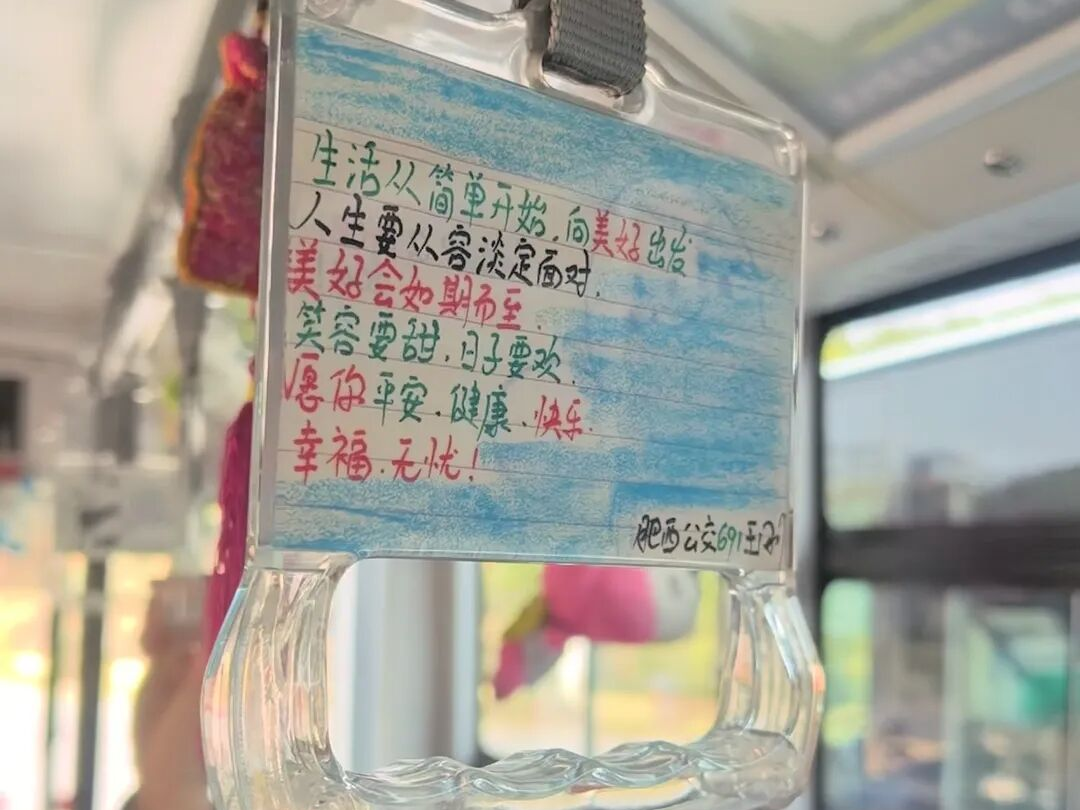 生活从简单开始.向美好出发
人生要从容淡定面对.
美好会如期而至.
笑容要甜.日子要欢.
愿你平安.健康.快乐.
幸福.无忧!
肥西公交691王